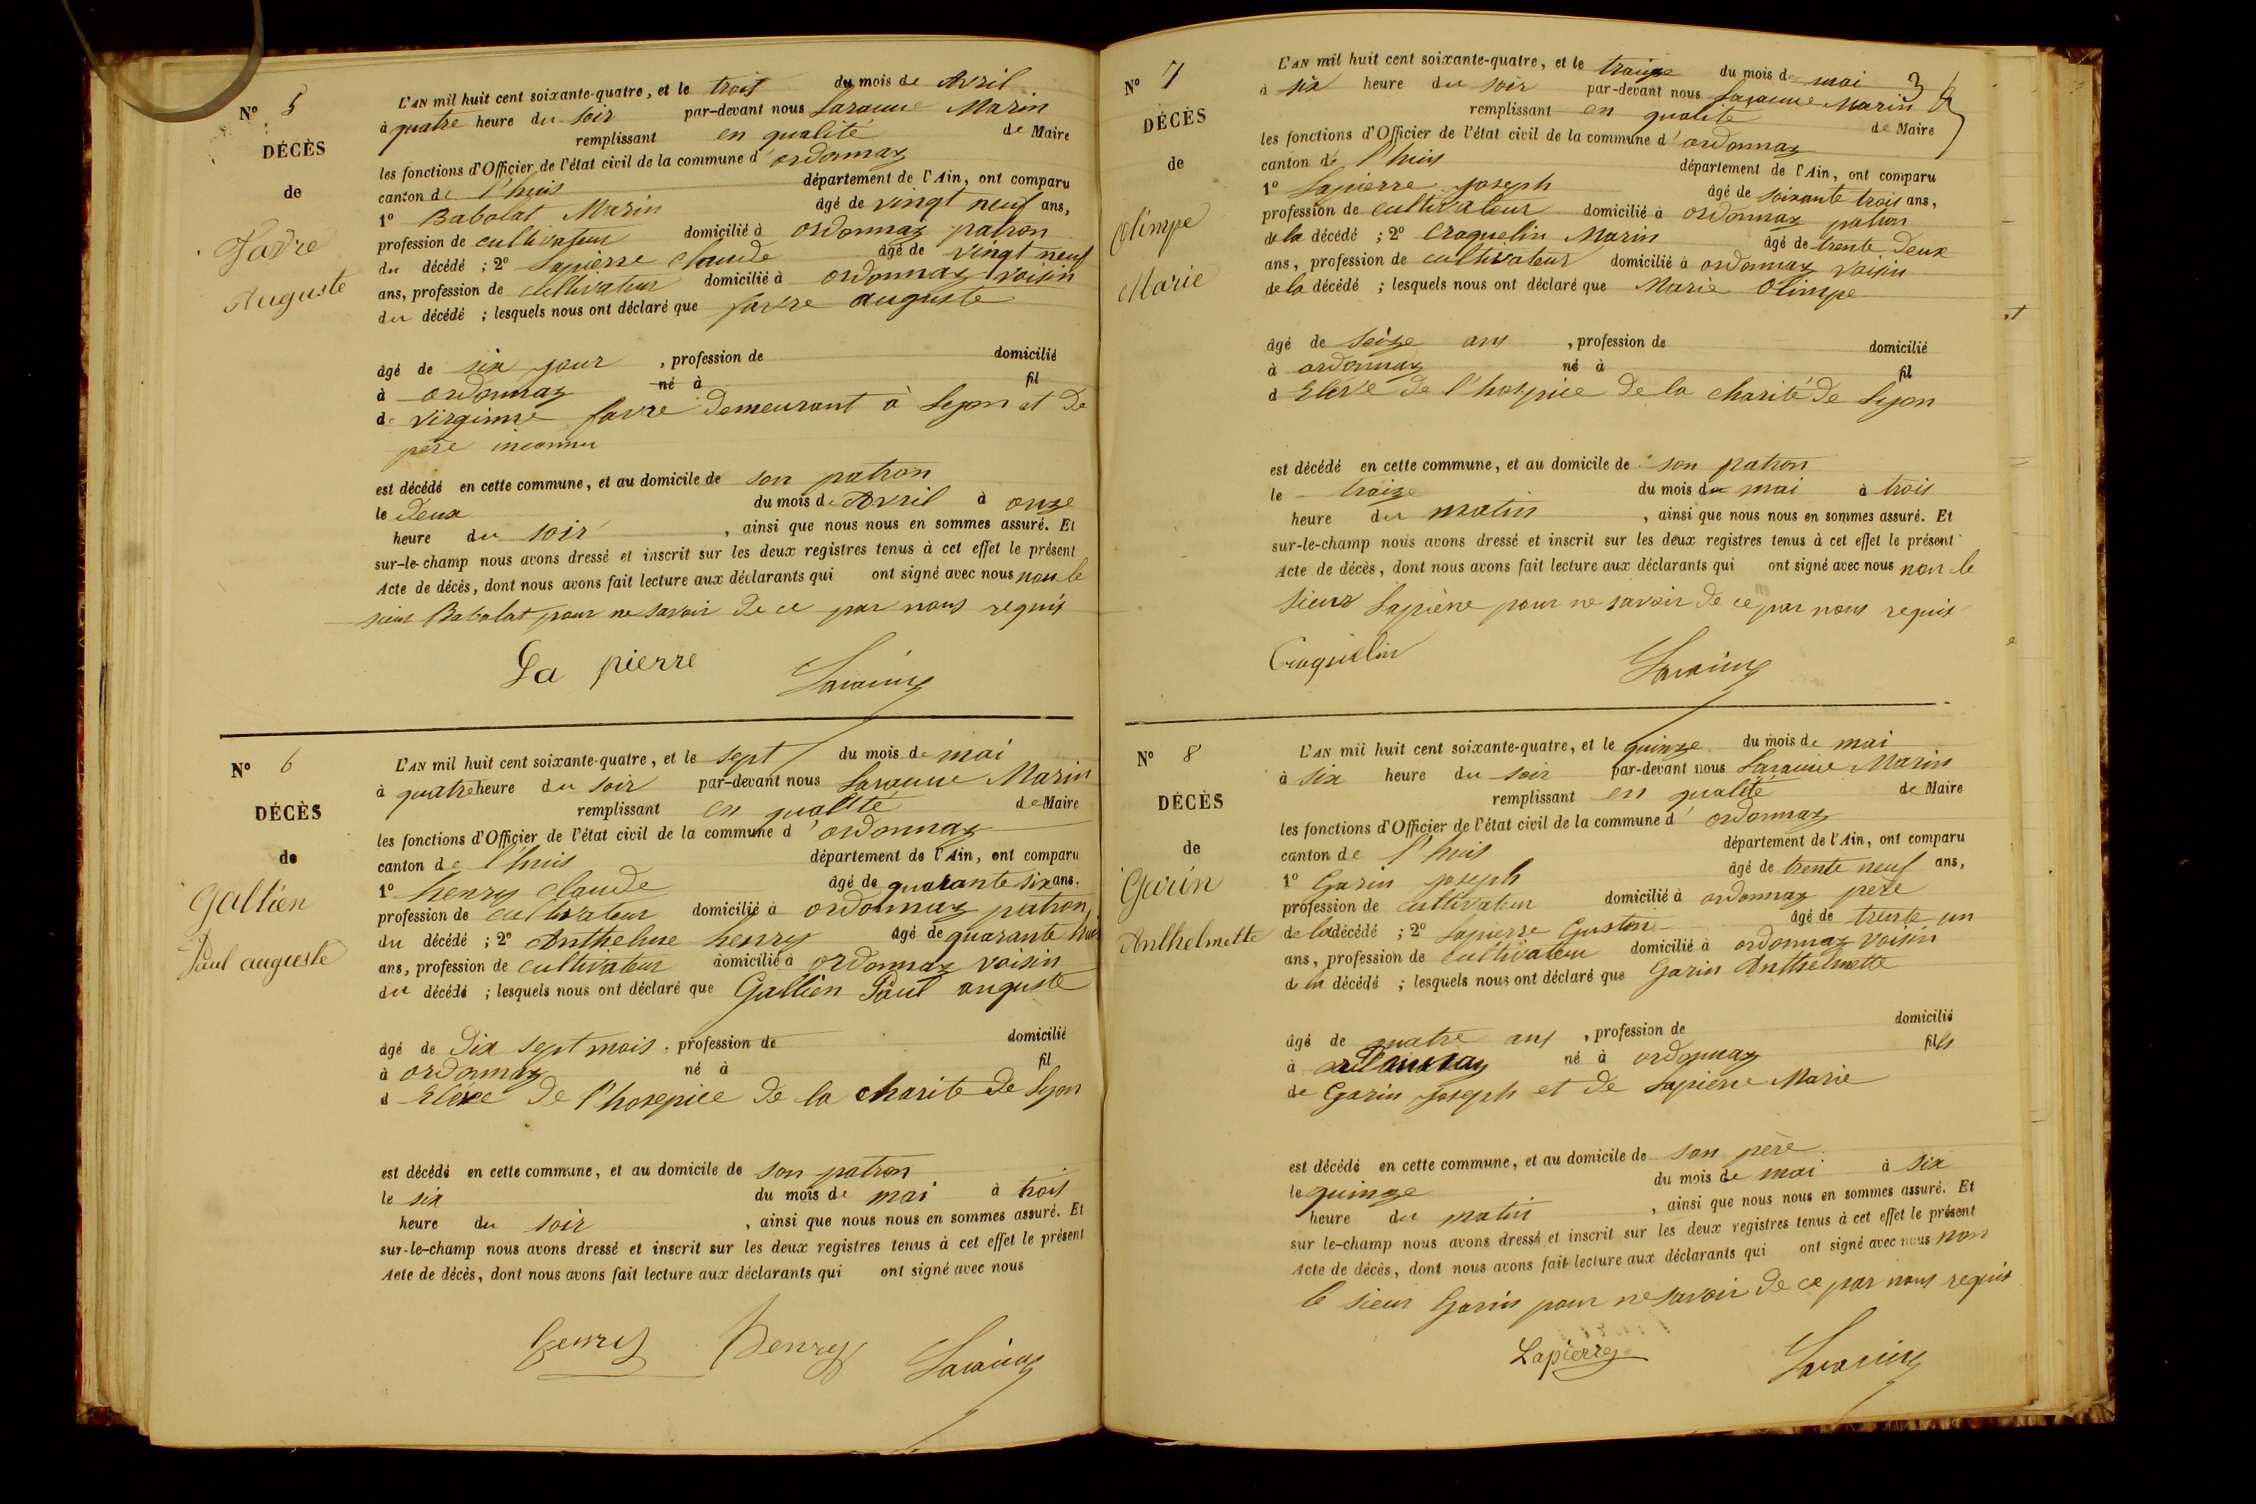 N° 5
DÉCÈS
de
Favre
Auguste
L'AN mil huit cent soixante-quatre, et le trois du mois de Avril
à quatre heure du soir par-devant nous Marin
remplissant en qualité de Maire
les fonctions d'Officier de l'état civil de la commune d'ordonnaz
canton de l'huis département de l'Ain, ont comparu
1° Babolat Marin âgé de vingt neuf ans,
profession de cultivateur domicilié à ordonnaz patron
du décédé ; 2° Lapierre claude âgé de vingt neuf
ans, profession de cultivateur domicilié à ordonnaz voisin
du décédé ; lesquels nous ont déclaré que favre auguste
âgé de six jour , profession de domicilié
à ordonnaz né à fil
de virginie favre demeurant à Lyon et de
pere inconnu
est décédé en cette commune, et au domicile de son patron
le deux du mois de Avril à onze
heure du soir , ainsi que nous nous en sommes assuré. Et
sur-le-champ nous avons dressé et inscrit sur les deux registres tenus à cet effet le présent
Acte de décès, dont nous avons fait lecture aux déclarants qui ont signé avec nous non le
sieur Babolat pour ne savoir de ce par nous requis
La pierre
N° 6
DÉCÈS
de
Gallien
Paul auguste
L'AN mil huit cent soixante-quatre, et le sept du mois de mai
à quatre heure du soir par-devant nous Marin
remplissant en qualité de Maire
les fonctions d'Officier de l'état civil de la commune d'ordonnaz
canton de l'huis département de l'Ain, ont comparu
1° henry claude âgé de quarante six ans.
profession de cultivateur domicilié à ordonnaz patron
du décédé ; 2° Anthelme henry âgé de quarante
ans, profession de cultivateur domicilié à ordonnaz voisin
du décédé ; lesquels nous ont déclaré que Gallien Paul auguste
âgé de dix sept mois , profession de domicilié
à ordonnaz né à fil
d Elève de l'hospice de la charite de Lyon
est décédé en cette commune, et au domicile de son patron
le six du mois de mai à trois
heure du soir , ainsi que nous nous en sommes assuré. Et
sur-le-champ nous avons dressé et inscrit sur les deux registres tenus à cet effet le présent
Acte de décès, dont nous avons fait lecture aux déclarants qui ont signé avec nous
henry henry
N° 7
DÉCÈS
de
Olimpe
Marie
L'AN mil huit cent soixante-quatre, et le traize du mois de mai
à six heure du soir par-devant nous Marin
remplissant en qualité de Maire
les fonctions d'Officier de l'état civil de la commune d'ordonnaz
canton de l'huis département de l'Ain, ont comparu
1° Lapierre joseph âgé de soixante trois ans,
profession de cultivateur domicilié à ordonnaz patron
de la décédé ; 2° Craquelin Marin âgé de trente deux
ans, profession de cultivateur domicilié à ordonnaz voisin
de la décédé ; lesquels nous ont déclaré que Marie Olimpe
âgé de seize ans , profession de domicilié
à ordonnaz né à fil
d Elève de l'hospice de la charité de Lyon
est décédé en cette commune, et au domicile de son patron
le traize du mois de mai à trois
heure du matin , ainsi que nous nous en sommes assuré. Et
sur-le-champ nous avons dressé et inscrit sur les deux registres tenus à cet effet le présent
Acte de décès, dont nous avons fait lecture aux déclarants qui ont signé avec nous non le
sieur Lapierre pour ne savoir de ce par nous requis
Craquelin
N° 8
DÉCÈS
de
Garin
Anthelmette
L'AN mil huit cent soixante-quatre, et le quinze du mois de mai
à six heure du soir par-devant nous Marin
remplissant en qualité de Maire
les fonctions d'Officier de l'état civil de la commune d'ordonnaz
canton de l'huis département de l'Ain, ont comparu
1° Garin joseph âgé de trente neuf ans,
profession de cultivateur domicilié à ordonnaz pere
de la décédé ; 2° Lapierre Guston âgé de trente un
ans, profession de cultivateur domicilié à ordonnaz voisin
de la décédé ; lesquels nous ont déclaré que Garin Anthelmette
âgé de quatre ans , profession de domicilié
à ordonnaz né à ordonnaz fils
de Garin joseph et de Lapierre Marie
est décédé en cette commune, et au domicile de son père
le quinze du mois de mai à six
heure du matin , ainsi que nous nous en sommes assuré. Et
sur le-champ nous avons dressé et inscrit sur les deux registres tenus à cet effet le présent
Acte de décès, dont nous avons fait lecture aux déclarants qui ont signé avec nous non
le sieur Garin pour ne savoir de ce par nous requis
Lapierre